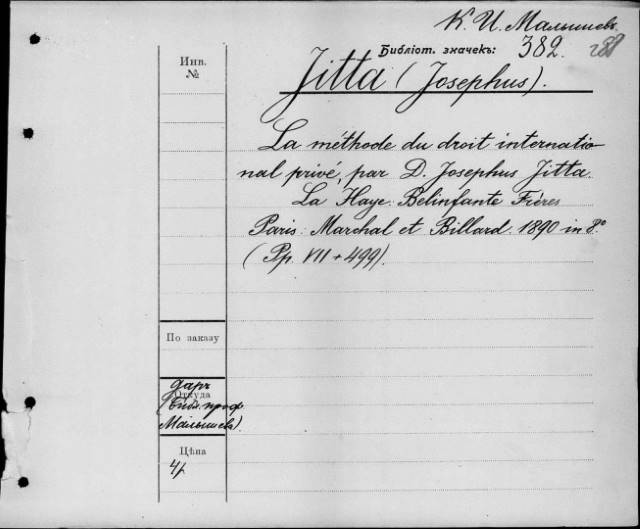 К. И. Малышевъ.
Библіот. значекъ: 382.
Инв. №
Jitta (Josephus).
La méthode du droit internatio-
nal privé, par D. Josephus Jitta.
La Haye: Belinfante Frères
Paris: Marchal et Billard. 1890 in 8º
(Pp. VII + 499).
По заказу
Даръ
Откуда
(Библ. проф.
Малышева).
Цѣна